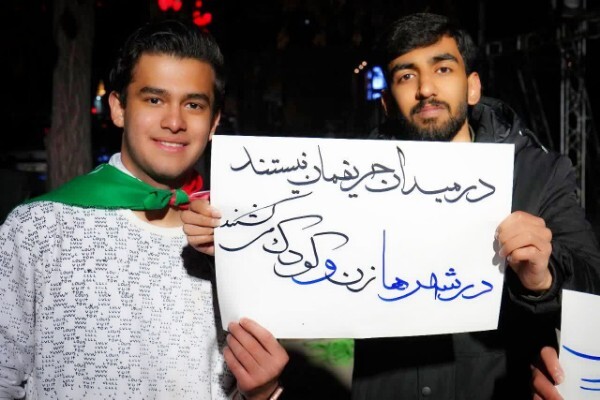 در میدان حریفمان نیستند
در شهرها زن و کودک می‌کشند